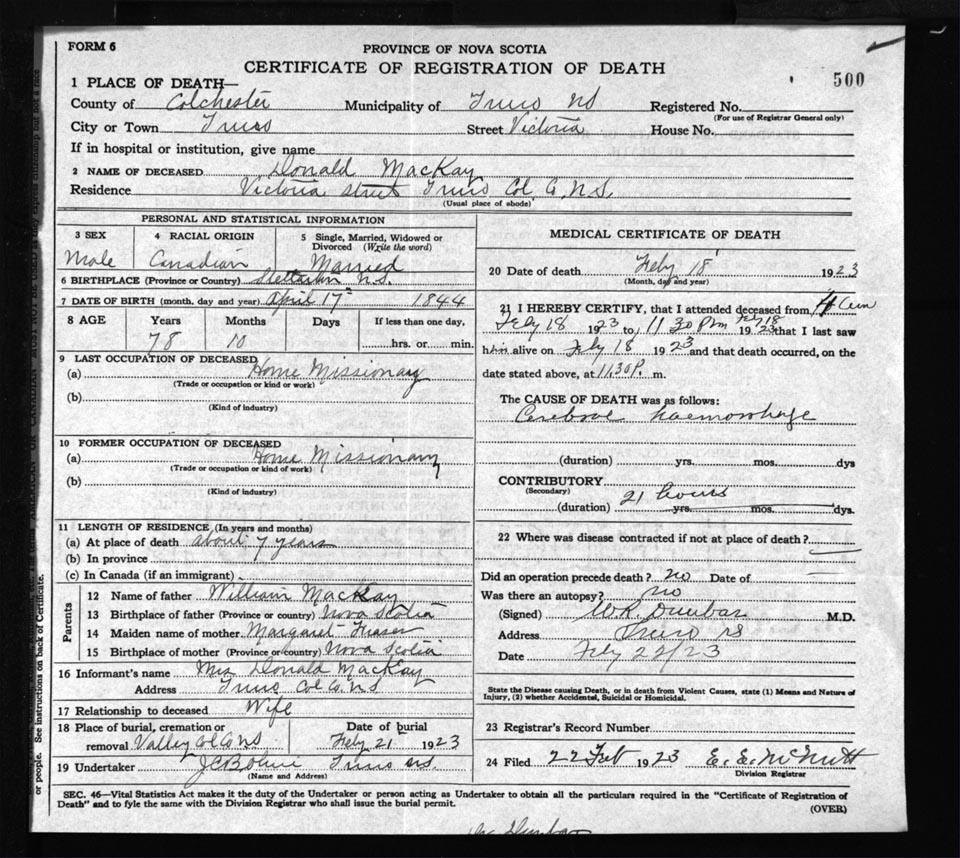 FORM 6
PROVINCE OF NOVA SCOTIA
CERTIFICATE OF REGISTRATION OF DEATH
500
1 PLACE OF DEATH—
County of Colchester Municipality of Truro NS Registered No.
(For use of Registrar General only)
City or Town Truro Street Victoria House No.
If in hospital or institution, give name
2 NAME OF DECEASED Donald MacKay
Residence Victoria Street Truro Col Co. N.S.
(Usual place of abode)
PERSONAL AND STATISTICAL INFORMATION
3 SEX 4 RACIAL ORIGIN 5 Single, Married, Widowed or Divorced (Write the word)
Male Canadian Married
6 BIRTHPLACE (Province or Country) N.S.
7 DATE OF BIRTH (month, day and year) April 17th 1844
8 AGE Years Months Days If less than one day,
78 10 hrs. or min.
9 LAST OCCUPATION OF DECEASED
(a) Home Missionary
(Trade or occupation or kind or work)
(b)
(Kind of industry)
10 FORMER OCCUPATION OF DECEASED
(a) Home Missionary
(Trade or occupation or kind of work)
(b)
(Kind of industry)
11 LENGTH OF RESIDENCE (In years and months)
(a) At place of death about 7 years
(b) In province
(c) In Canada (if an immigrant)
Parents
12 Name of father William MacKay
13 Birthplace of father (Province or Country) Nova Scotia
14 Maiden name of mother Margaret Fraser
15 Birthplace of mother (Province or country) Nova Scotia
16 Informant's name Mrs Donald MacKay
Address Truro Col Co. NS
17 Relationship to deceased Wife
18 Place of burial, cremation or Date of burial
removal Valley Col Co NS Feby 21 1923
19 Undertaker Truro NS.
(Name and Address)
MEDICAL CERTIFICATE OF DEATH
20 Date of death Feby 18 1923
(Month, day and year)
21 I HEREBY CERTIFY, that I attended deceased from
Feby 18 1923 to 11 30 Pm Feby 18 1923 that I last saw
him alive on Feby 18 1923 and that death occurred, on the
date stated above, at 11.30 P. m.
The CAUSE OF DEATH was as follows:
Cerebral haemorrhage
(duration) yrs. mos. dys
CONTRIBUTORY
(Secondary)
21 hours
(duration) yrs. mos. dys.
22 Where was disease contracted if not at place of death?
Did an operation precede death? no Date of
Was there an autopsy? no
(Signed) W.R. Dunbar M.D.
Address Truro NS
Date Feby 22/23
State the Disease causing Death, or in death from Violent Causes, state (1) Means and Nature of
Injury, (2) whether Accidental, Suicidal or Homicidal.
23 Registrar's Record Number
24 Filed 22 Feb 1923 E. E. McNutt
Division Registrar
SEC. 46—Vital Statistics Act makes it the duty of the Undertaker or person acting as Undertaker to obtain all the particulars required in the "Certificate of Registration of
Death" and to fyle the same with the Division Registrar who shall issue the burial permit.
(OVER)
or people. See instructions on back of Certificate.
Dr Dunbar